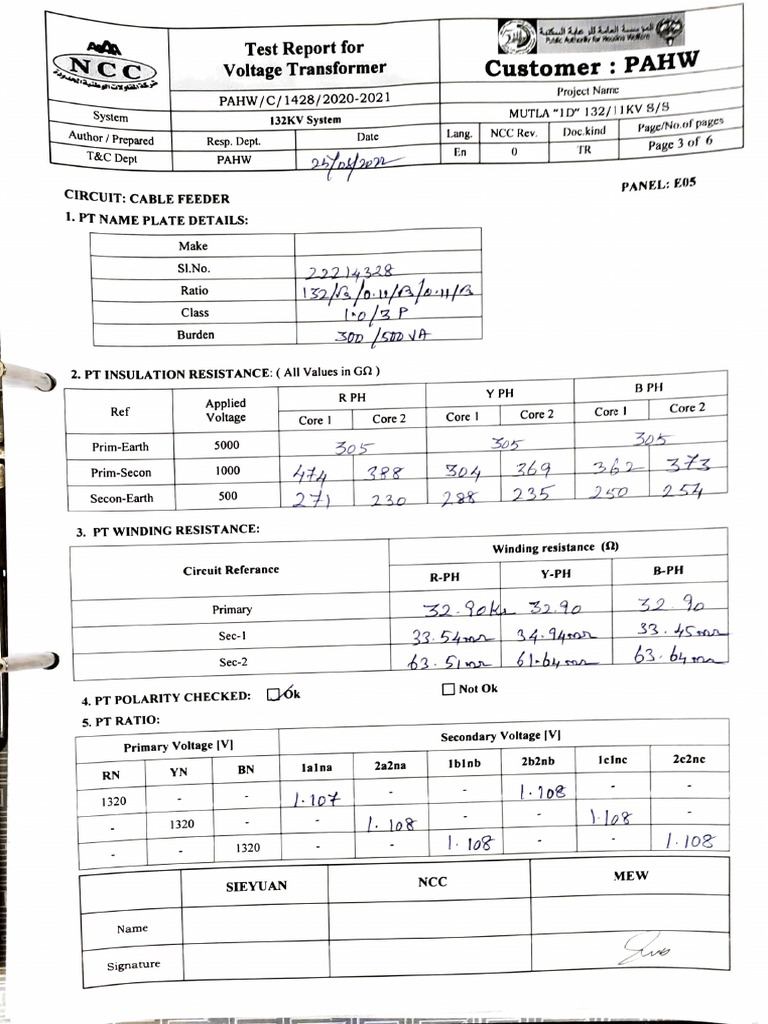 NCC
شركة المقاولات الوطنية المحدودة
Test Report for
Voltage Transformer
PAHW/C/1428/2020-2021
المؤسسة العامة للرعاية السكنية
Public Authority for Housing Welfare
Customer : PAHW
Project Name
System
132KV System
MUTLA "1D" 132/11KV S/S
Author / Prepared
Resp. Dept.
Date
Lang.
NCC Rev.
Doc.kind
Page/No.of pages
T&C Dept
PAHW
En
0
TR
Page 3 of 6
CIRCUIT: CABLE FEEDER
PANEL: E05
1. PT NAME PLATE DETAILS:
Make
Sl.No. 22214328
Ratio 132/√3/0.11/√3/0.11/√3
Class 1.0/3P
Burden 300/500VA
2. PT INSULATION RESISTANCE: ( All Values in GΩ )
Ref Applied Voltage R PH Y PH B PH
Core 1 Core 2 Core 1 Core 2 Core 1 Core 2
Prim-Earth 5000 305 305 305
Prim-Secon 1000 474 388 304 369 362 373
Secon-Earth 500 271 230 288 235 250 254
3. PT WINDING RESISTANCE:
Circuit Referance Winding resistance (Ω)
R-PH Y-PH B-PH
Primary 32.90KΩ 32.90 32.90
Sec-1 33.54mΩ 34.94mΩ 33.45mΩ
Sec-2 63.51mΩ 61.64mΩ 63.64mΩ
4. PT POLARITY CHECKED: Ok Not Ok
5. PT RATIO:
Primary Voltage [V] Secondary Voltage [V]
RN YN BN 1a1na 2a2na 1b1nb 2b2nb 1c1nc 2c2nc
1320 - - 1.107 - - 1.108 - -
- 1320 - - 1.108 - - 1.108 -
- - 1320 - - 1.108 - - 1.108
SIEYUAN NCC MEW
Name
Signature